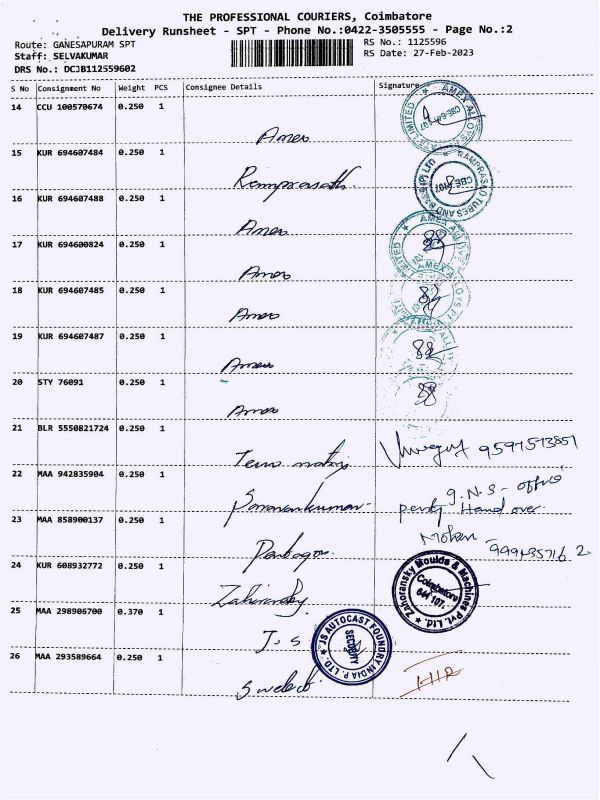 THE PROFESSIONAL COURIERS, Coimbatore
Delivery Runsheet - SPT - Phone No.:0422-3505555 - Page No.:2
Route: GANESAPURAM SPT
RS No.: 1125596
Staff: SELVAKUMAR
RS Date: 27-Feb-2023
DRS No.: DCJB112559602
S No Consignment No Weight PCS Consignee Details Signature
14 CCU 100570674 0.250 1
Amex
AMEX ALLOYS
LIMITED
15 KUR 694607484 0.250 1
Ramprasath
RAMPRASAD TUBES AND
16 KUR 694607488 0.250 1
Amex
AMEX ALLOYS
LIMITED
17 KUR 694600824 0.250 1
Amex
AMEX ALLOYS
18 KUR 694607485 0.250 1
Amex
19 KUR 694607487 0.250 1
Amex
20 STY 76091 0.250 1
Amex
21 BLR 5550821724 0.250 1
9597573851
22 MAA 942835904 0.250 1
Saravanakumar
G.N.S - office
Hand over
23 MAA 858900137 0.250 1
Pentagon
Mohan
24 KUR 608932772 0.250 1
Zahoransky
Zahoransky Moulds & Machines Pvt. Ltd.
Coimbatore
641 107.
25 MAA 298906700 0.370 1
J.S
JS AUTOCAST FOUNDRY INDIA P. LTD
SECURITY
26 MAA 293589664 0.250 1
Swelect